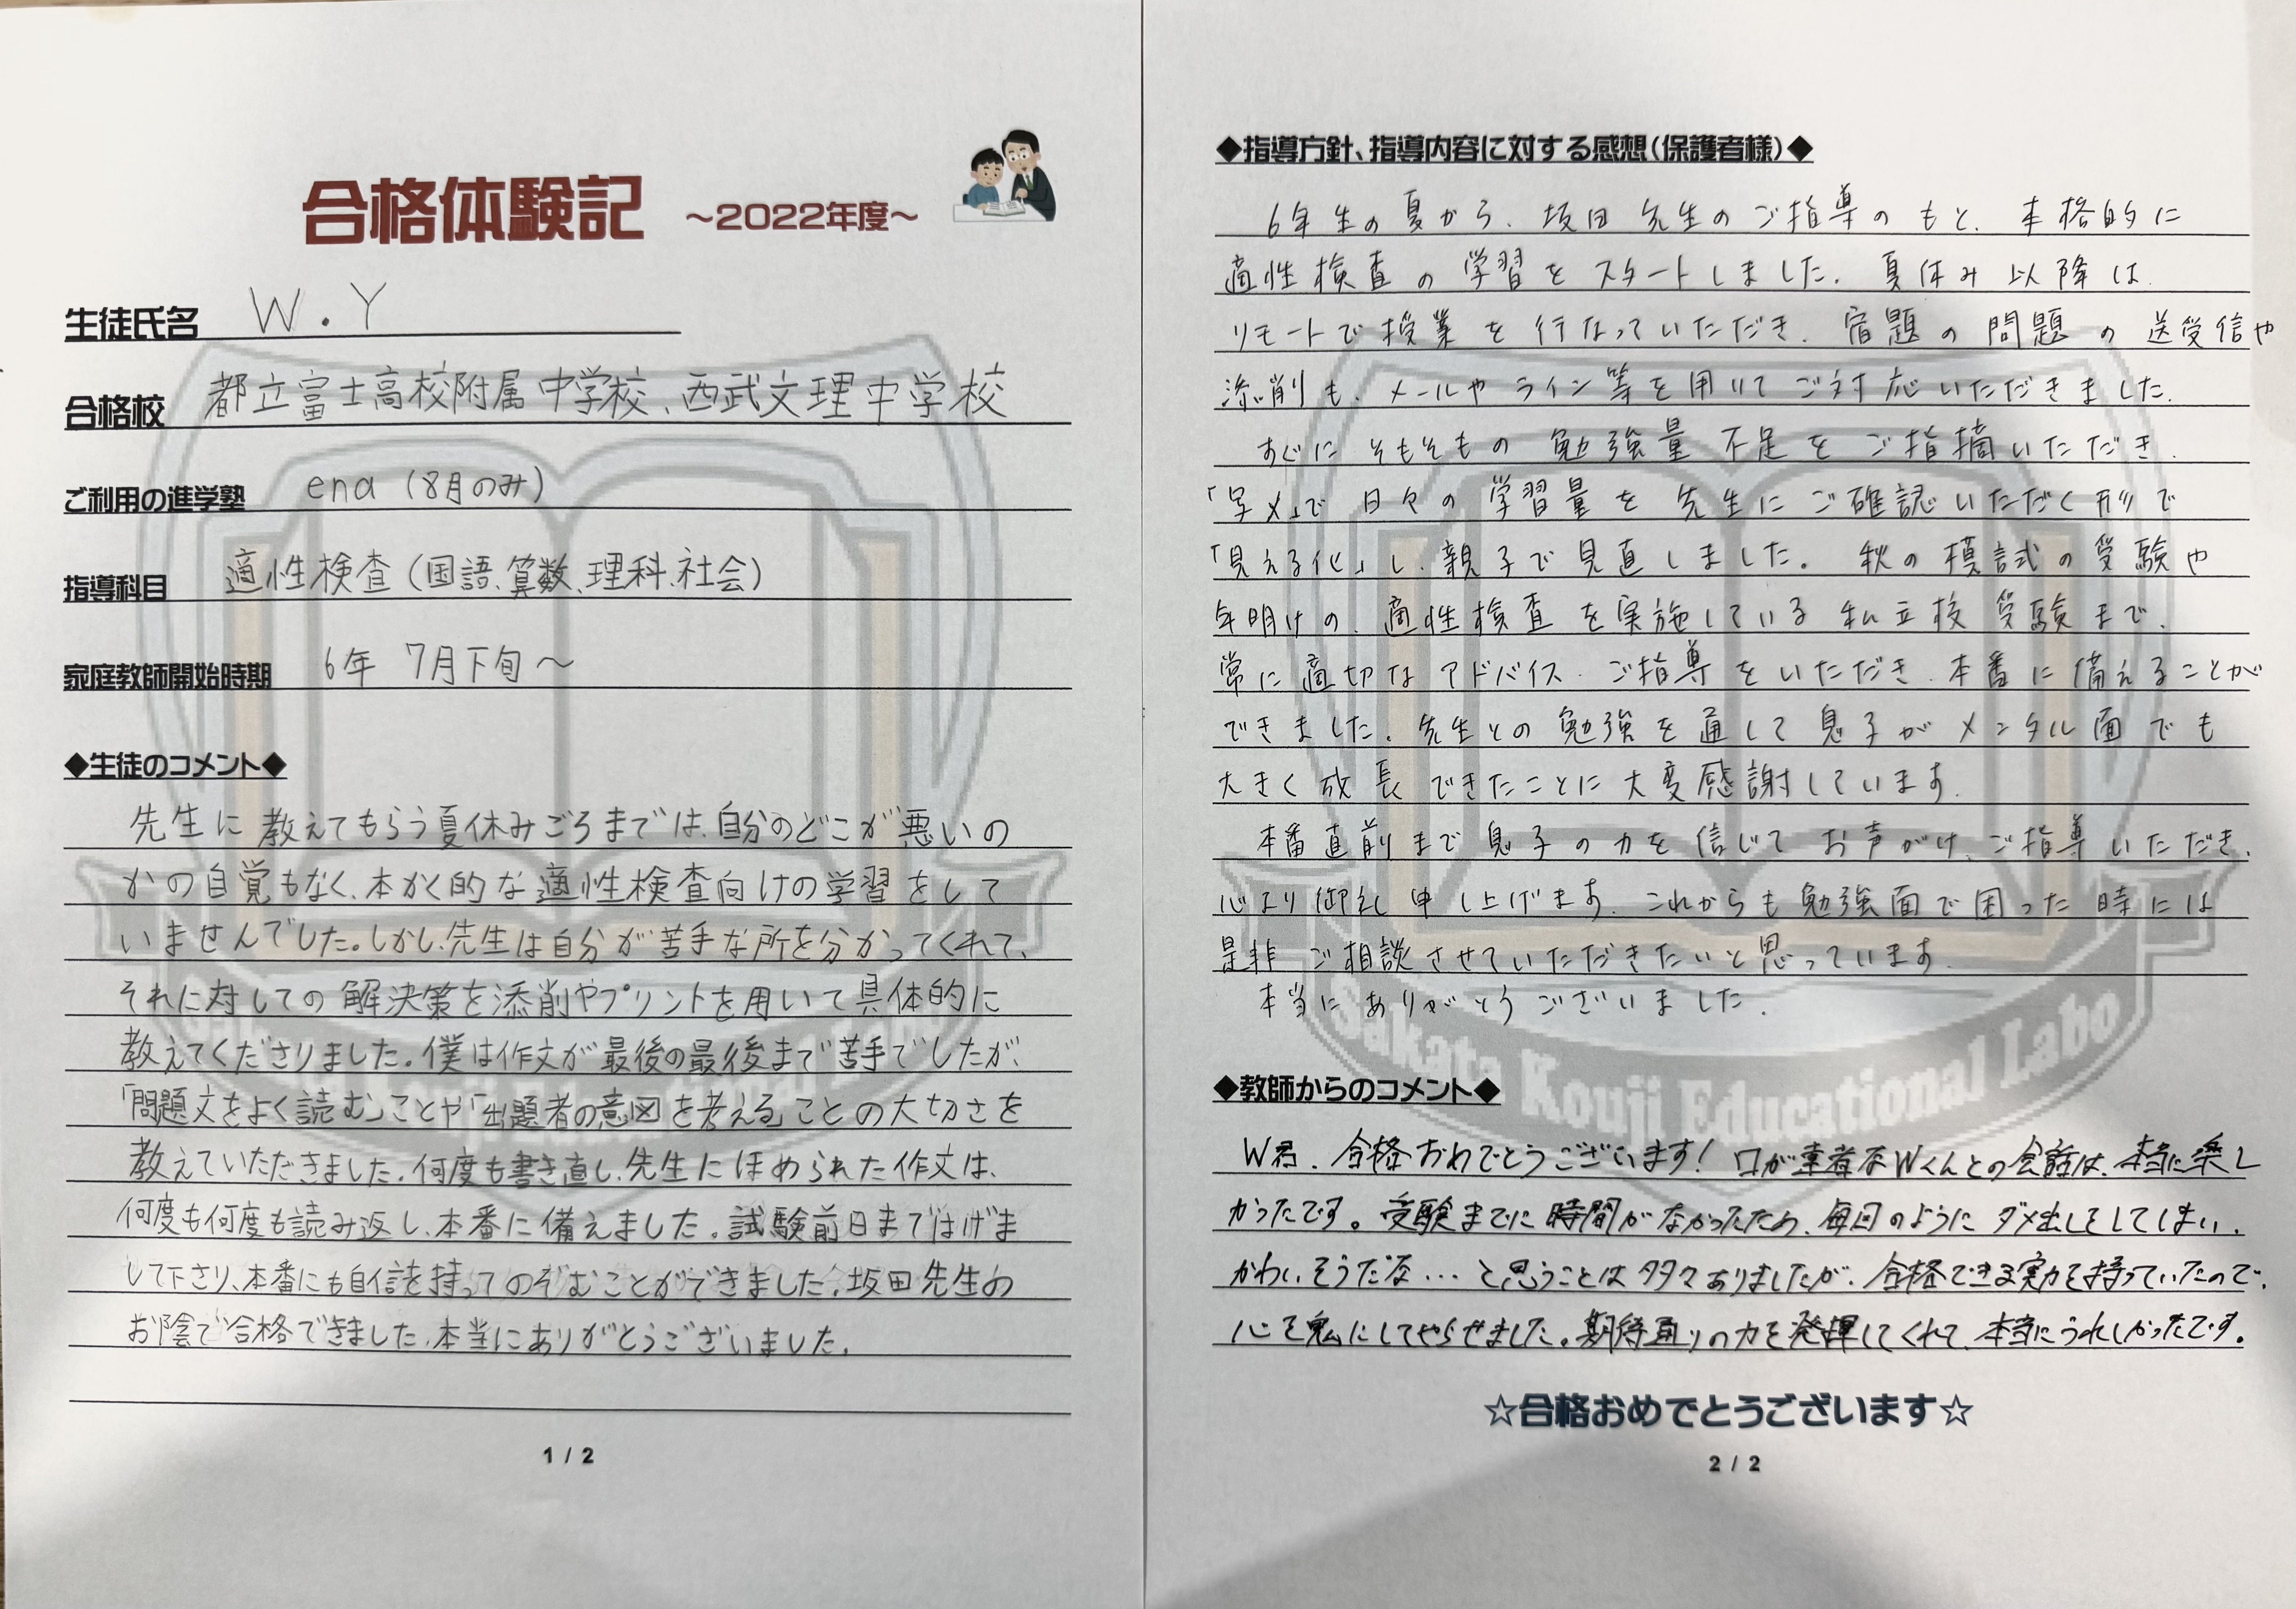 合格体験記 ～2022年度～
生徒氏名 W.Y
合格校 都立富士高校附属中学校、西武文理中学校
ご利用の進学塾 ena（8月のみ）
指導科目 適性検査（国語、算数、理科、社会）
家庭教師開始時期 6年 7月下旬～
◆生徒のコメント◆
先生に教えてもらう夏休みごろまでは、自分のどこが悪いの
かの自覚もなく、本かく的な適性検査向けの学習をして
いませんでした。しかし、先生は自分が苦手な所を分かってくれて、
それに対しての解決策を添削やプリントを用いて具体的に
教えてくださりました。僕は作文が最後の最後まで苦手でしたが、
「問題文をよく読む」ことや「出題者の意図を考える」ことの大切さを
教えていただきました。何度も書き直し、先生にほめられた作文は、
何度も何度も読み返し、本番に備えました。試験前日まではげま
して下さり、本番にも自信を持ってのぞむことができました。坂田先生の
お陰で合格できました。本当にありがとうございました。
1 / 2
◆指導方針、指導内容に対する感想（保護者様）◆
6年生の夏から、坂田先生のご指導のもと、本格的に
適性検査の学習をスタートしました。夏休み以降は
リモートで授業を行なっていただき、宿題の問題の送受信や
添削も、メールやライン等を用いてご対応いただきました。
すぐにそもそもの勉強量不足をご指摘いただき、
「写メ」で日々の学習量を先生にご確認いただく形で
「見える化」し、親子で見直しました。秋の模試の受験や
年明けの、適性検査を実施している私立校受験まで、
常に適切なアドバイス、ご指導をいただき、本番に備えることが
できました。先生との勉強を通して息子がメンタル面でも
大きく成長できたことに大変感謝しています。
本番直前まで息子の力を信じてお声がけ、ご指導いただき、
心より御礼申し上げます。これからも勉強面で困った時には
是非ご相談させていただきたいと思っています。
本当にありがとうございました。
Sakata Kouji Educational Labo
◆教師からのコメント◆
W君、合格おめでとうございます！口が達者なWくんとの会話は、本当に楽し
かったです。受験までに時間がなかったため、毎回のようにダメ出しをしてしまい、
かわいそうだな…と思うことは多々ありましたが、合格できる実力を持っていたので、
心を鬼にしてやらせました。期待通りの力を発揮してくれて、本当にうれしかったです。
☆合格おめでとうございます☆
2 / 2